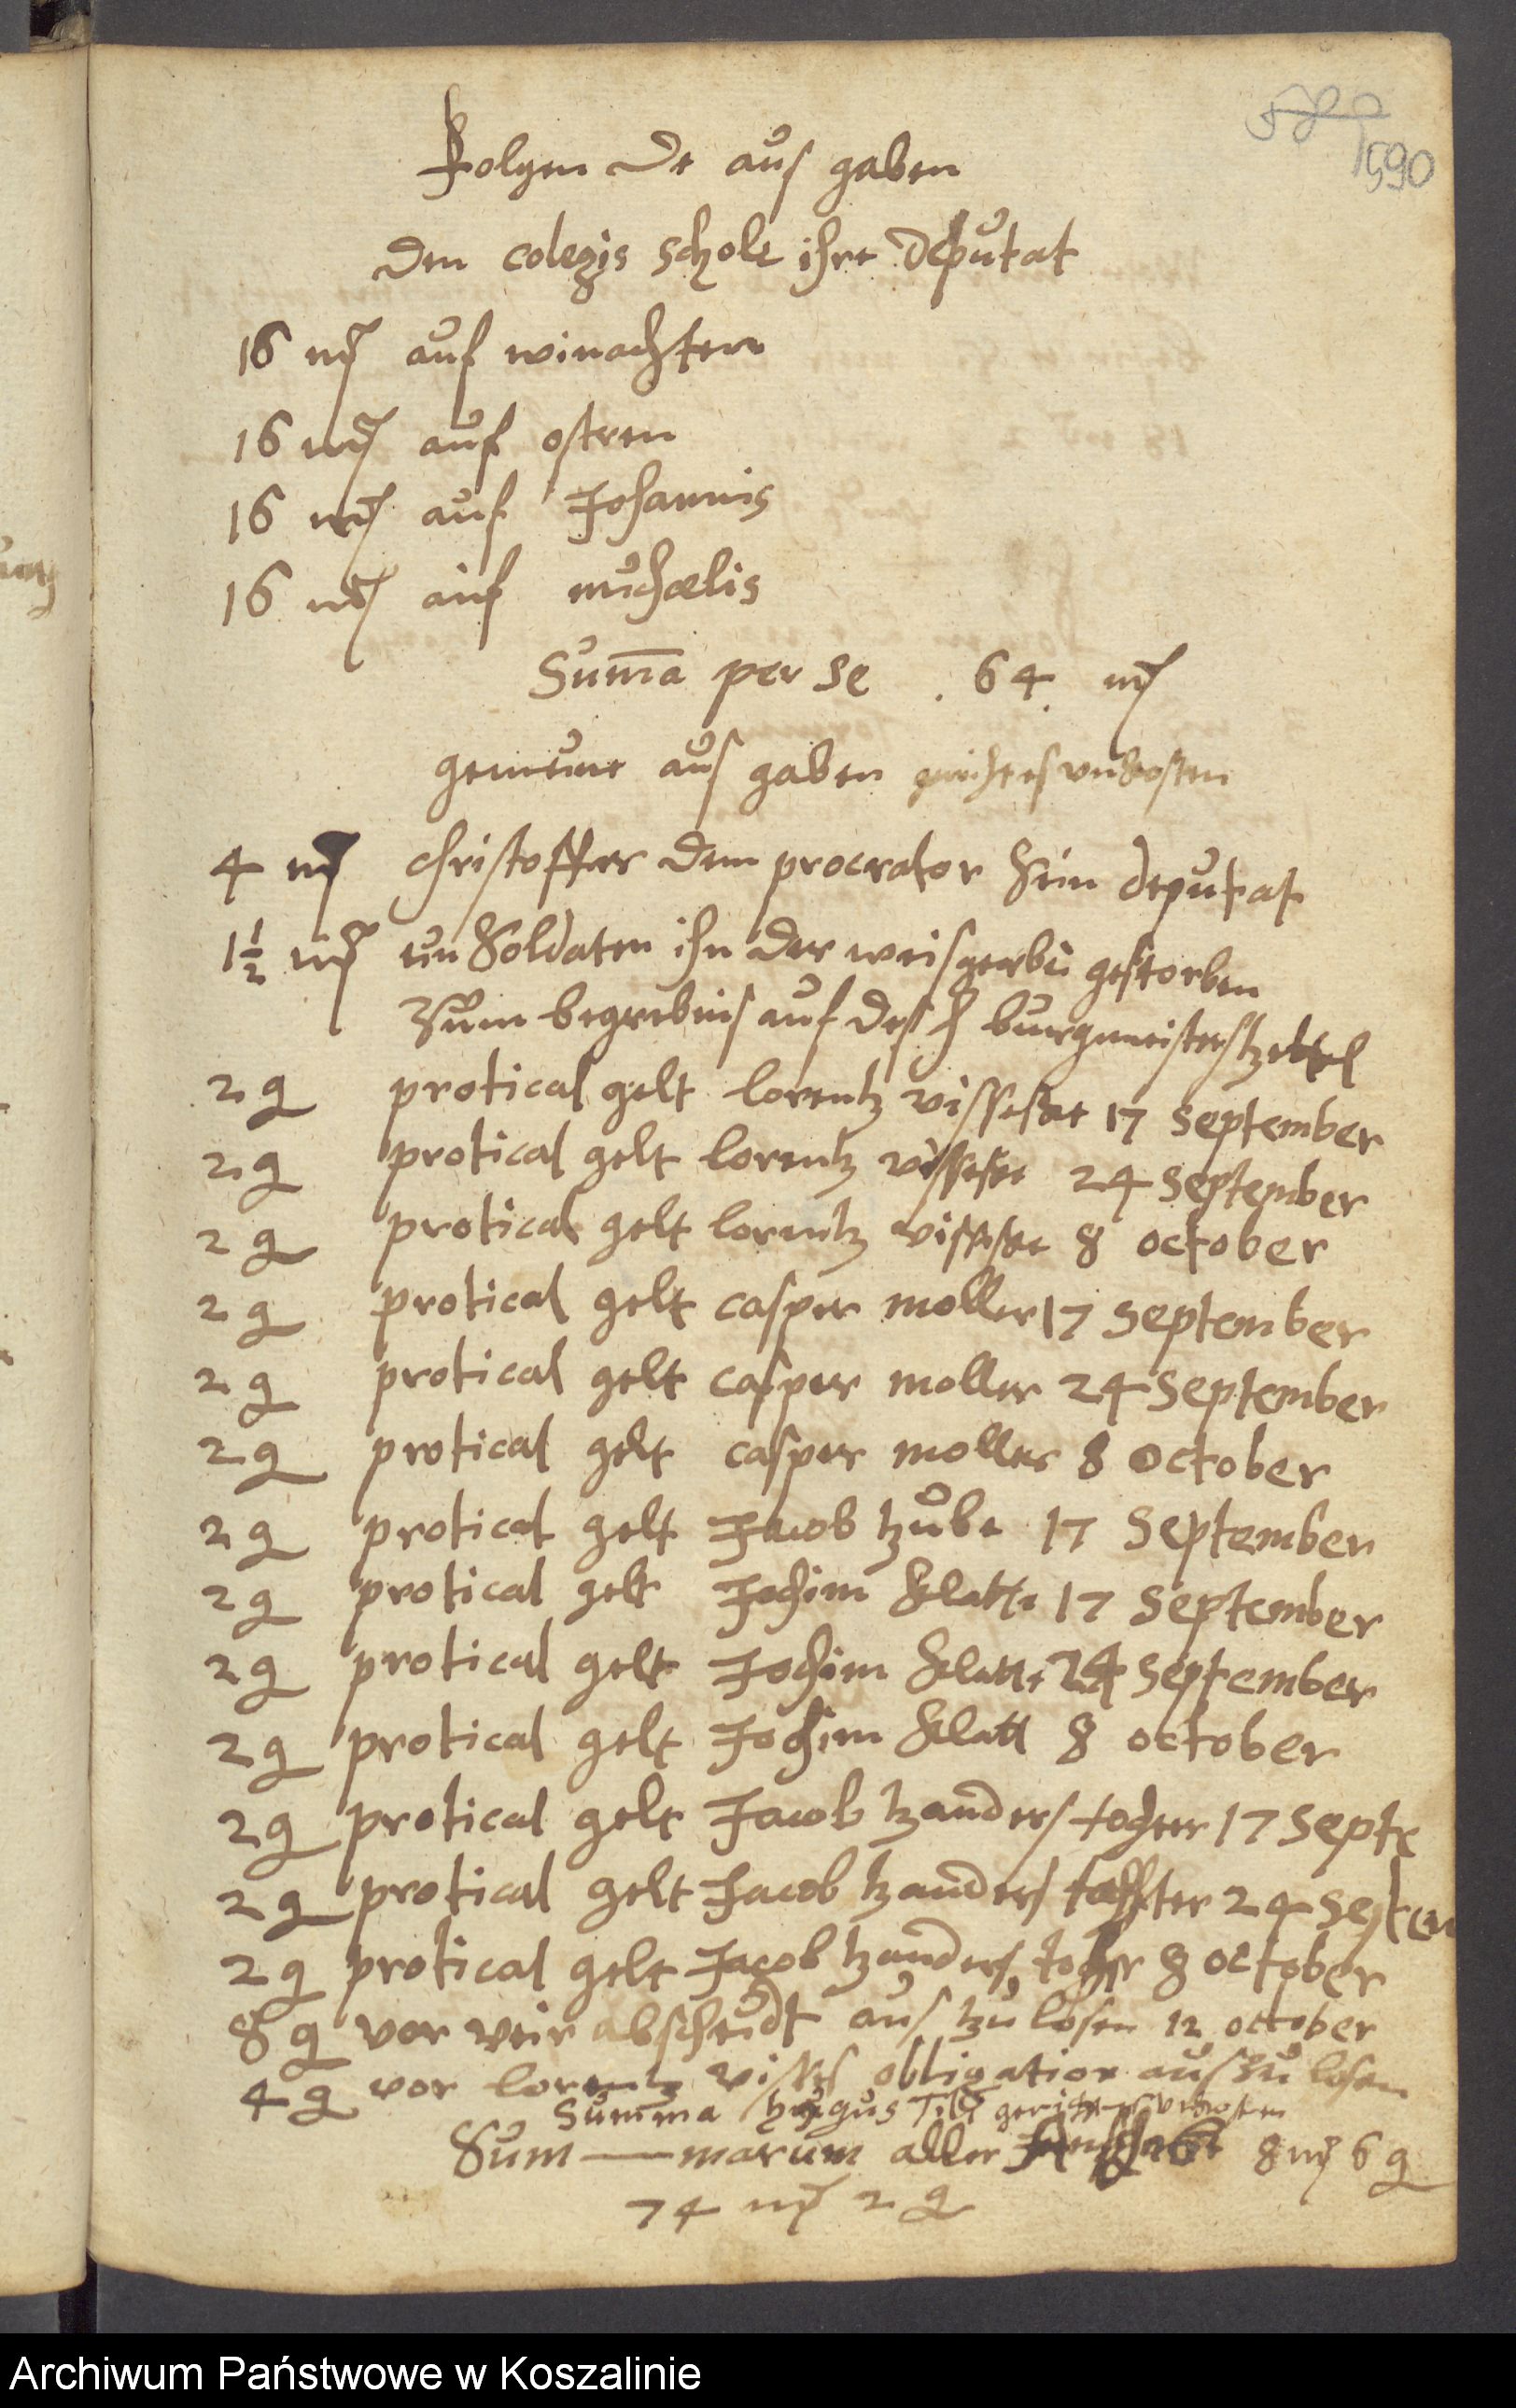 590
Folgen De aus gaben
Den colegis schole ihre Deputat
16 mk auf winachten
16 mk auf ostren
16 mk auf Johannis
16 mk auf michaelis
Summa per se . 64. mk
gemeine aus gaben gerichtes unkosten
4 mk christoffer Dem procrator sein deputat
1½ mk ein Soldaten ihn Der weisgerbe gestorben
Zum begrebnis auf Des H burgmeisters zettel
2 g protical gelt lorentz 17 September
2 g protical gelt lorentz 24 September
2 g protical gelt lorentz 8 october
2 g protical gelt casper moller 17 September
2 g protical gelt casper moller 24 September
2 g protical gelt casper moller 8 october
2 g protical gelt Jacob tzube 17 September
2 g protical gelt Jochim klatte 17 September
2 g protical gelt Jochim klatte 24 September
2 g protical gelt Jochim klatt 8 october
2 g protical gelt Jacob tzanders tochter 17 Septe
2 g protical gelt Jacob tzanders tochter 24 Septem
2 g protical gelt Jacob tzanders tochter 8 october
8 g vor veir abscheidt aus tzu losen 12 october
4 g vor lorentz obligation aus zu losen
Summa Tit gerichtes unkosten
Sum — marum aller 8 mk 6 g
74 mk 2 g
Archiwum Państwowe w Koszalinie